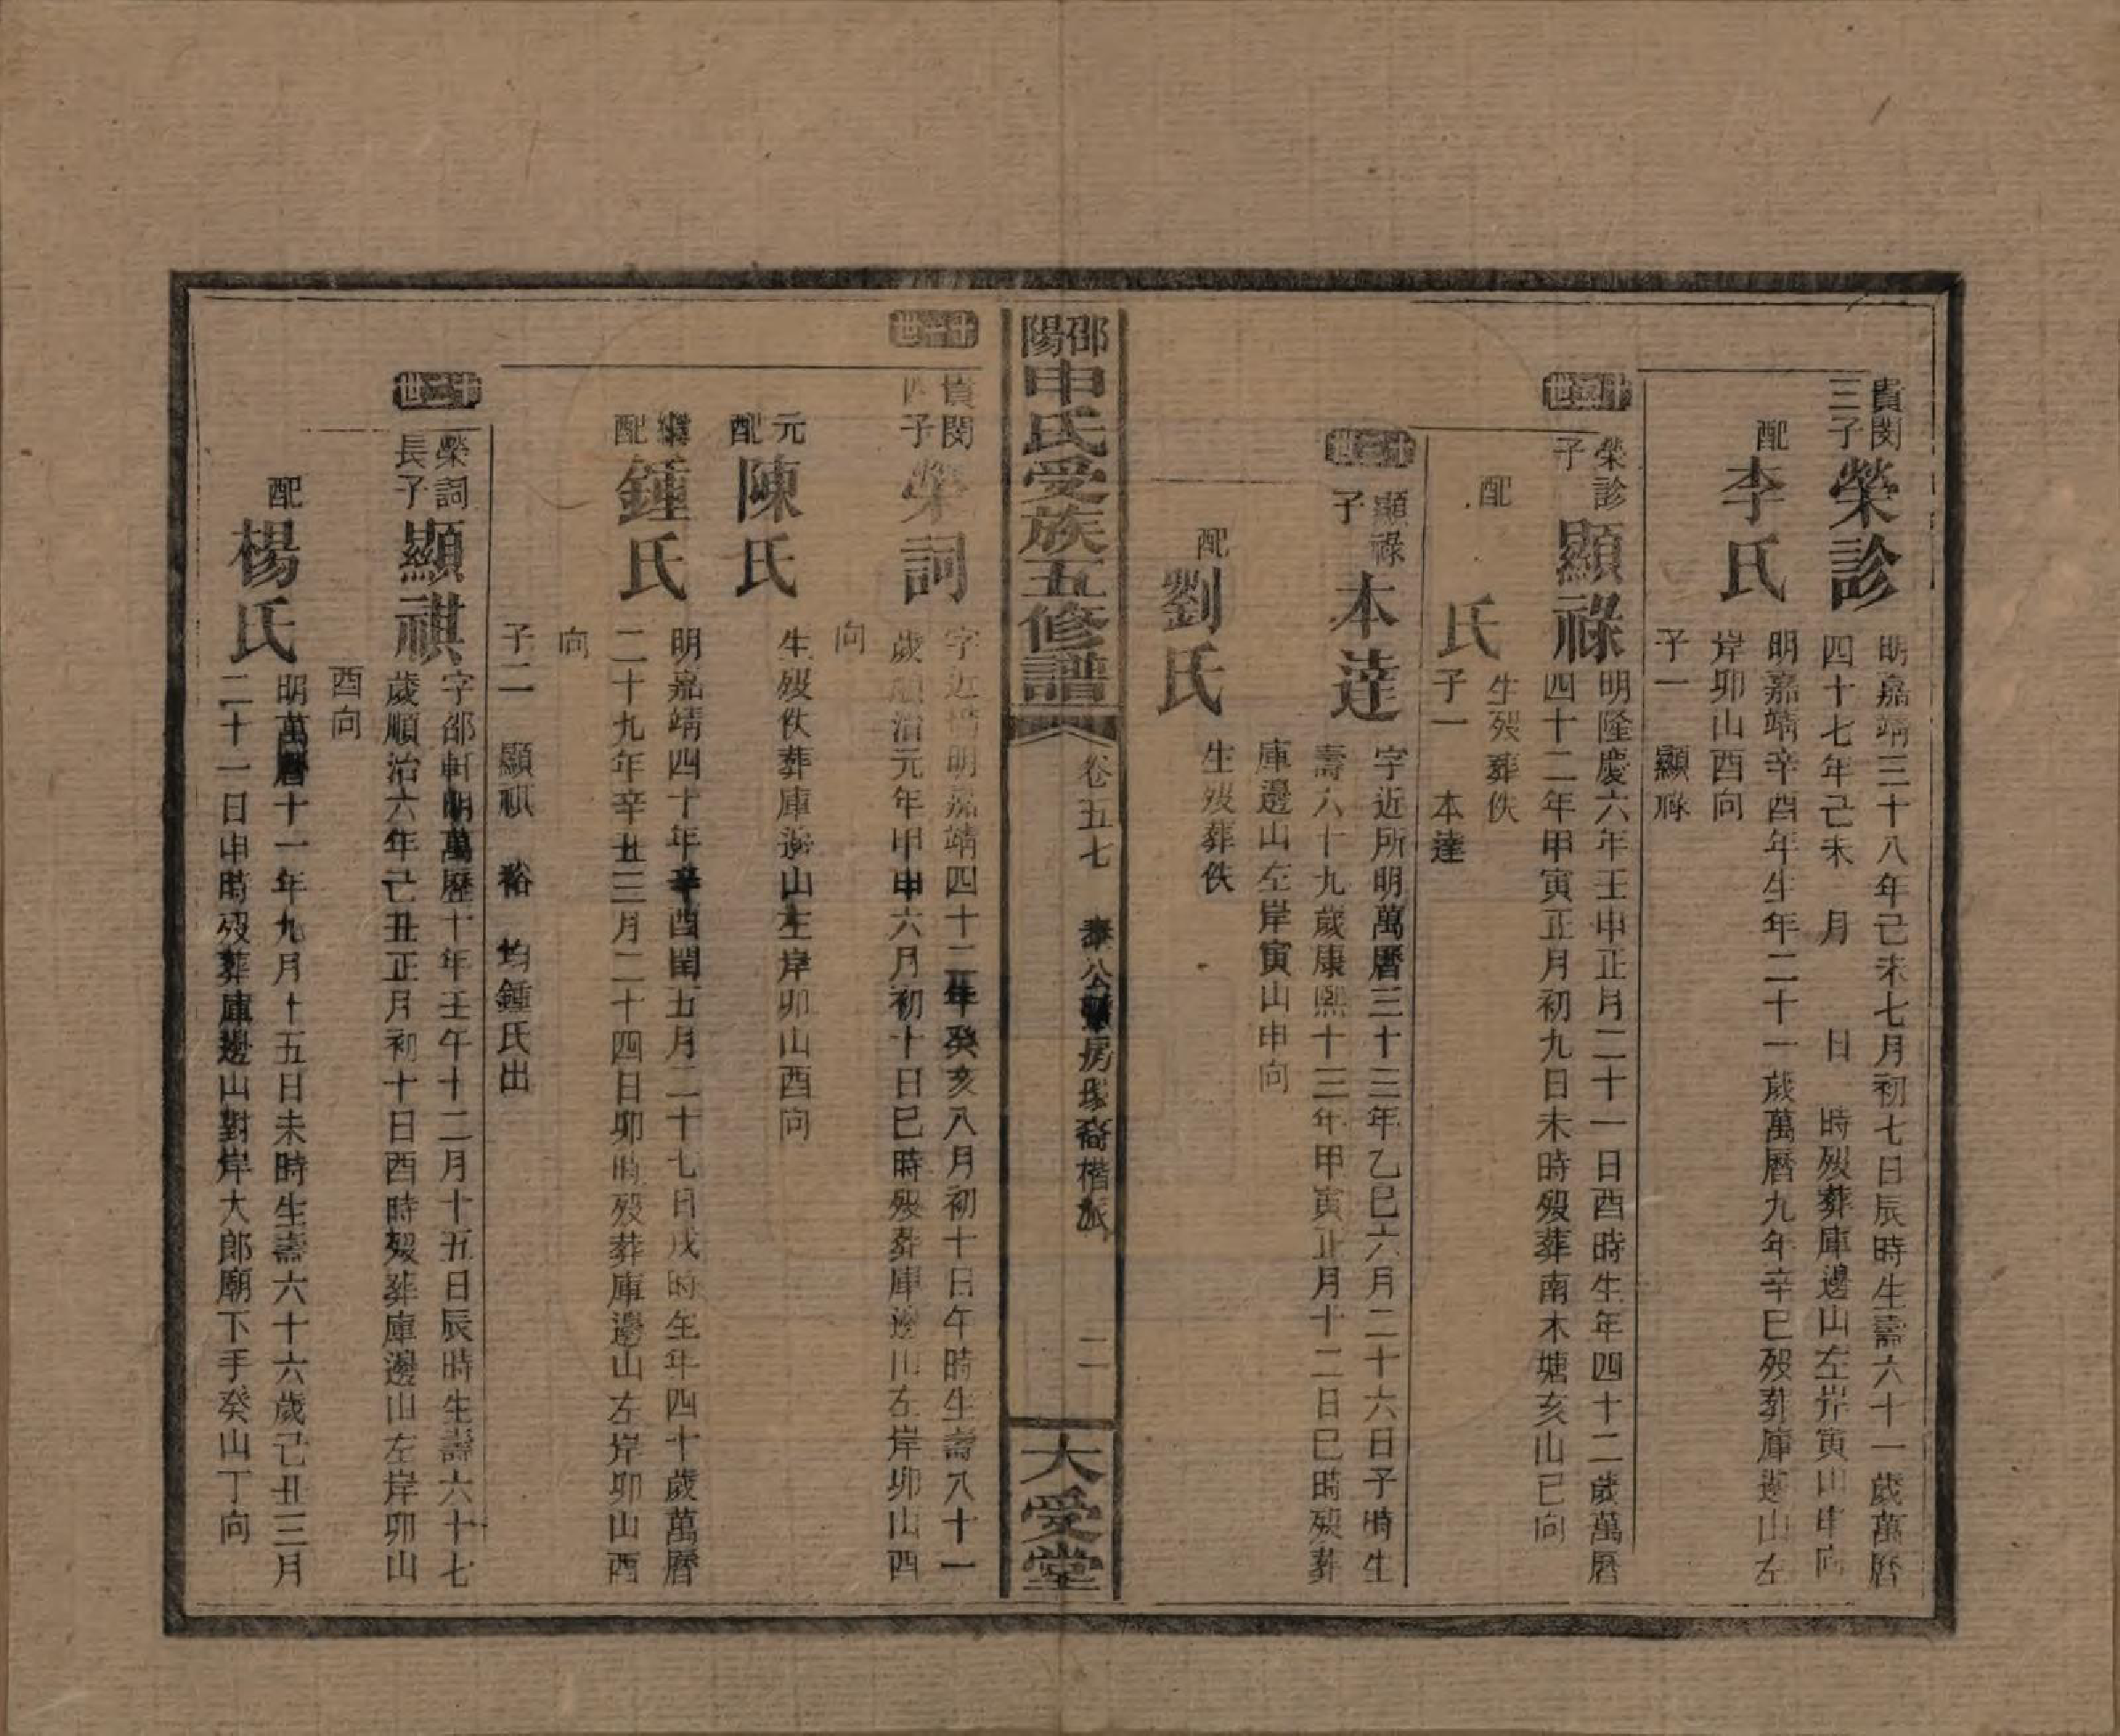 貴閔
三子
榮診
明嘉靖三十八年己未七月初七日辰時生壽六十一歲萬曆
四十七年己未 月 日 時歿葬庫邊山左岸寅山申向
配
李氏
明嘉靖辛酉年生年二十一歲萬曆九年辛巳歿葬庫邊山左
岸卯山酉向
子一 顯祿
世
榮診
子
顯祿
明隆慶六年壬申正月二十一日酉時生年四十二歲萬曆
四十二年甲寅正月初九日未時歿葬南木塘亥山巳向
配
氏
生歿葬佚
子一 本達
世
顯祿
子
本達
字近所明萬曆三十三年乙巳六月二十六日子時生
壽六十九歲康熙十三年甲寅正月十二日巳時歿葬
庫邊山左岸寅山申向
配
劉氏
生歿葬佚
邵陽申氏受族五修譜
卷五七
泰公房裔楷派
二
大受堂
世
貴閔
四子
榮詞
字近明嘉靖四十二年癸亥八月初十日午時生壽八十一
歲順治元年甲申六月初十日巳時歿葬庫邊山左岸卯山酉
向
元配
陳氏
生歿佚葬庫邊山左岸卯山酉向
繼配
鍾氏
明嘉靖四十年辛酉閏五月二十七日戌時生年四十歲萬曆
二十九年辛丑三月二十四日卯時歿葬庫邊山左岸卯山酉
向
子二 顯祺 裕 均鍾氏出
世
榮詞
長子
顯祺
字邵軒明萬曆十年壬午十二月十五日辰時生壽六十七
歲順治六年己丑正月初十日酉時歿葬庫邊山左岸卯山
酉向
配
楊氏
明萬曆十一年九月十五日未時生壽六十六歲己丑三月
二十一日申時歿葬庫邊山對岸大郎廟下手癸山丁向